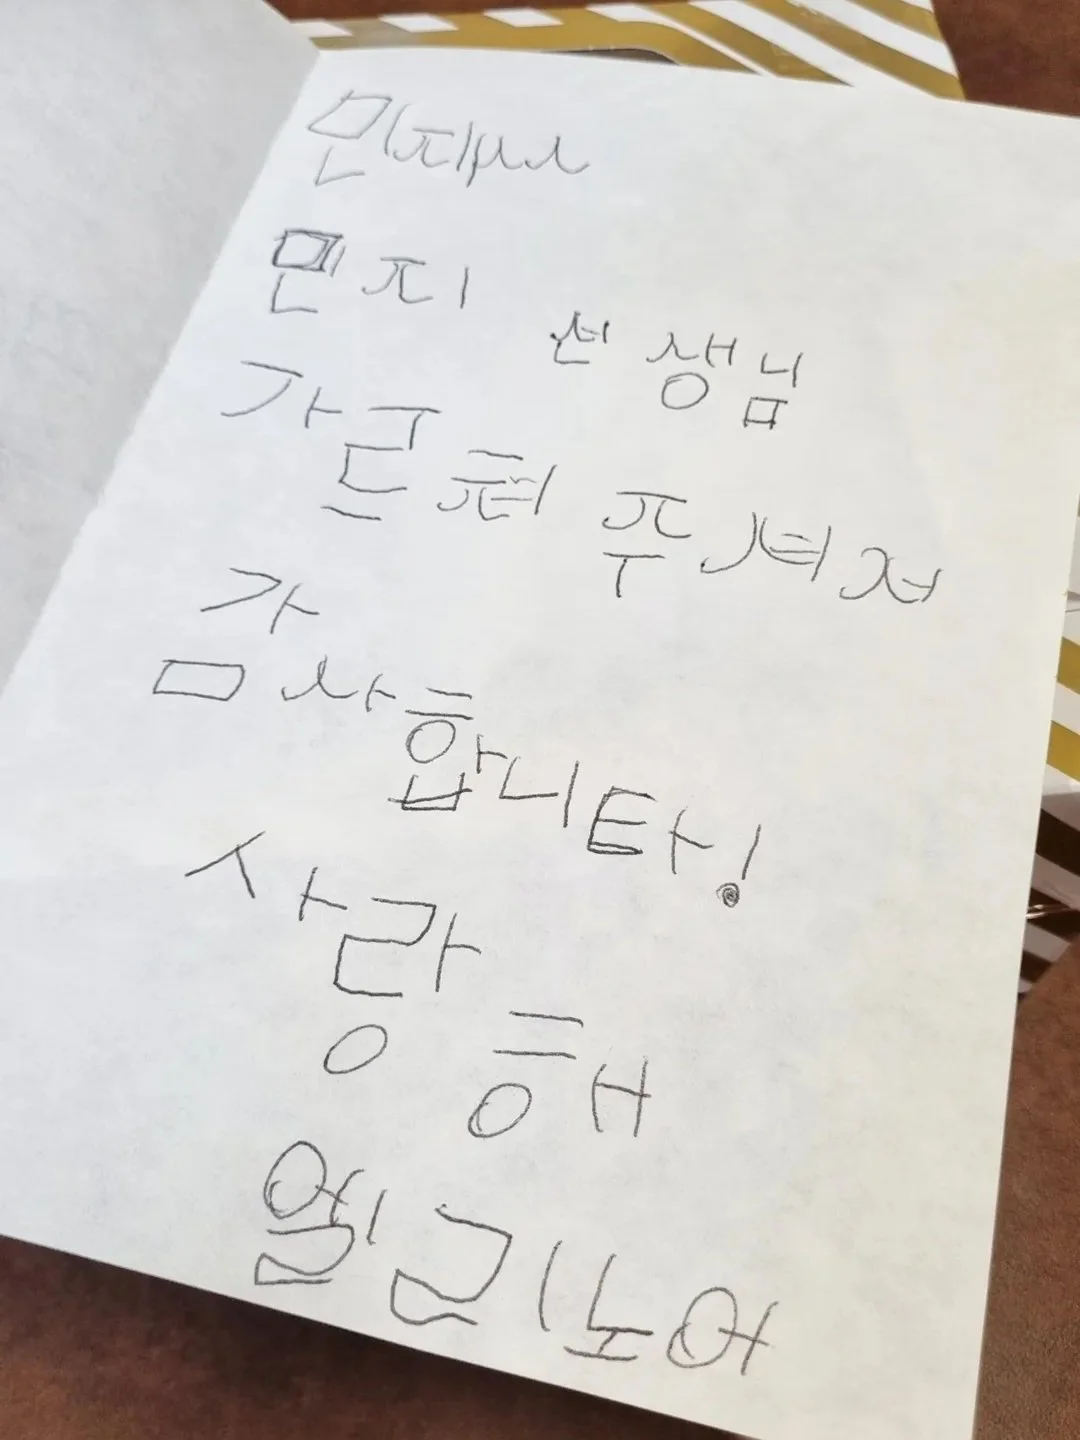 민지
민지 선생님
가르쳐 주셔저
감사합니다!
사랑해
엘리노어